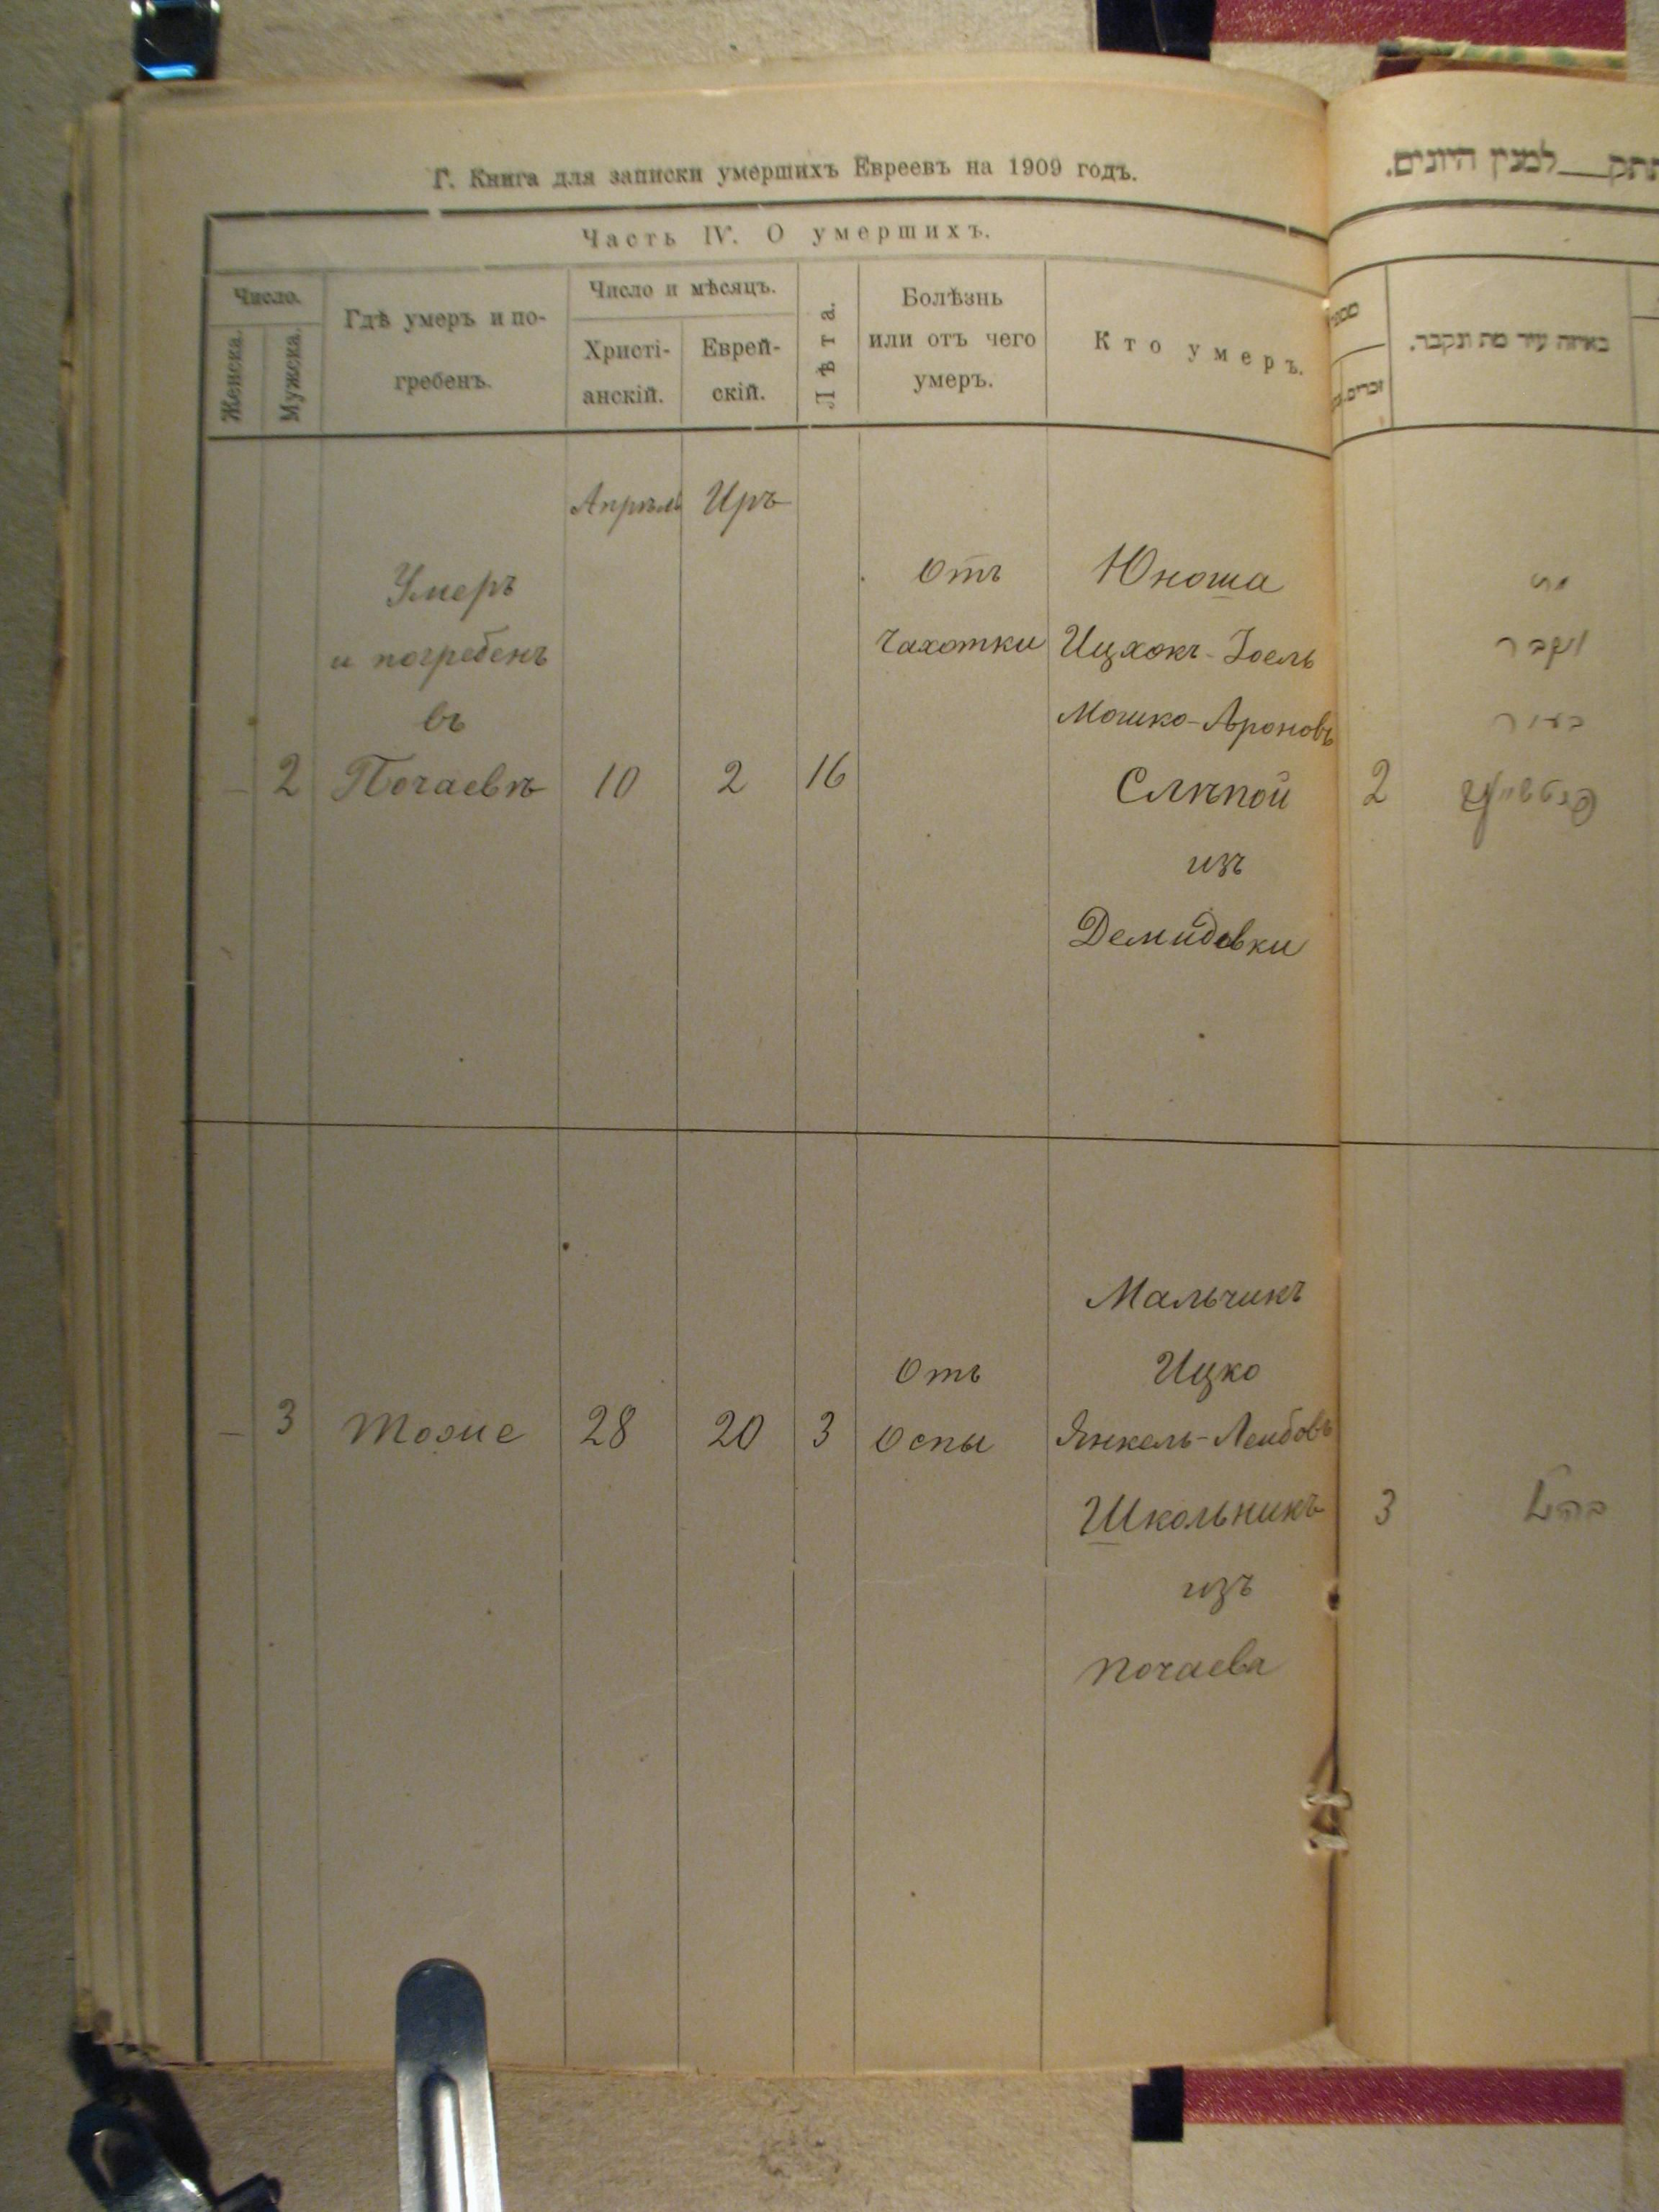 Г. Книга для записки умершихъ Евреевъ на 1909 годъ.
Часть IV. О умершихъ.
Число.
Женска.
Мужеска.
Гдѣ умеръ и по-
гребенъ.
Число и мѣсяцъ.
Христі-
анскій.
Еврей-
скій.
Лѣта.
Болѣзнь
или отъ чего
умеръ.
Кто умеръ.
Апрѣль Иръ
Умеръ
и погребенъ
въ
– 2 Почаевѣ 10 2 16
Отъ
Чахотки
Юноша
Ицхокъ-Іоель
Мошко-Ароновъ
Слѣпой
изъ
Демидовки
– 3 Тоже 28 20 3
Отъ
Оспы
Мальчикъ
Ицко
Янкель-Лейбовъ
Школьникъ
изъ
Почаева
למנין היונים.
באיזה עיר מת ונקבר.
זכרים.
מת
ונקבר
בעיר
2
3